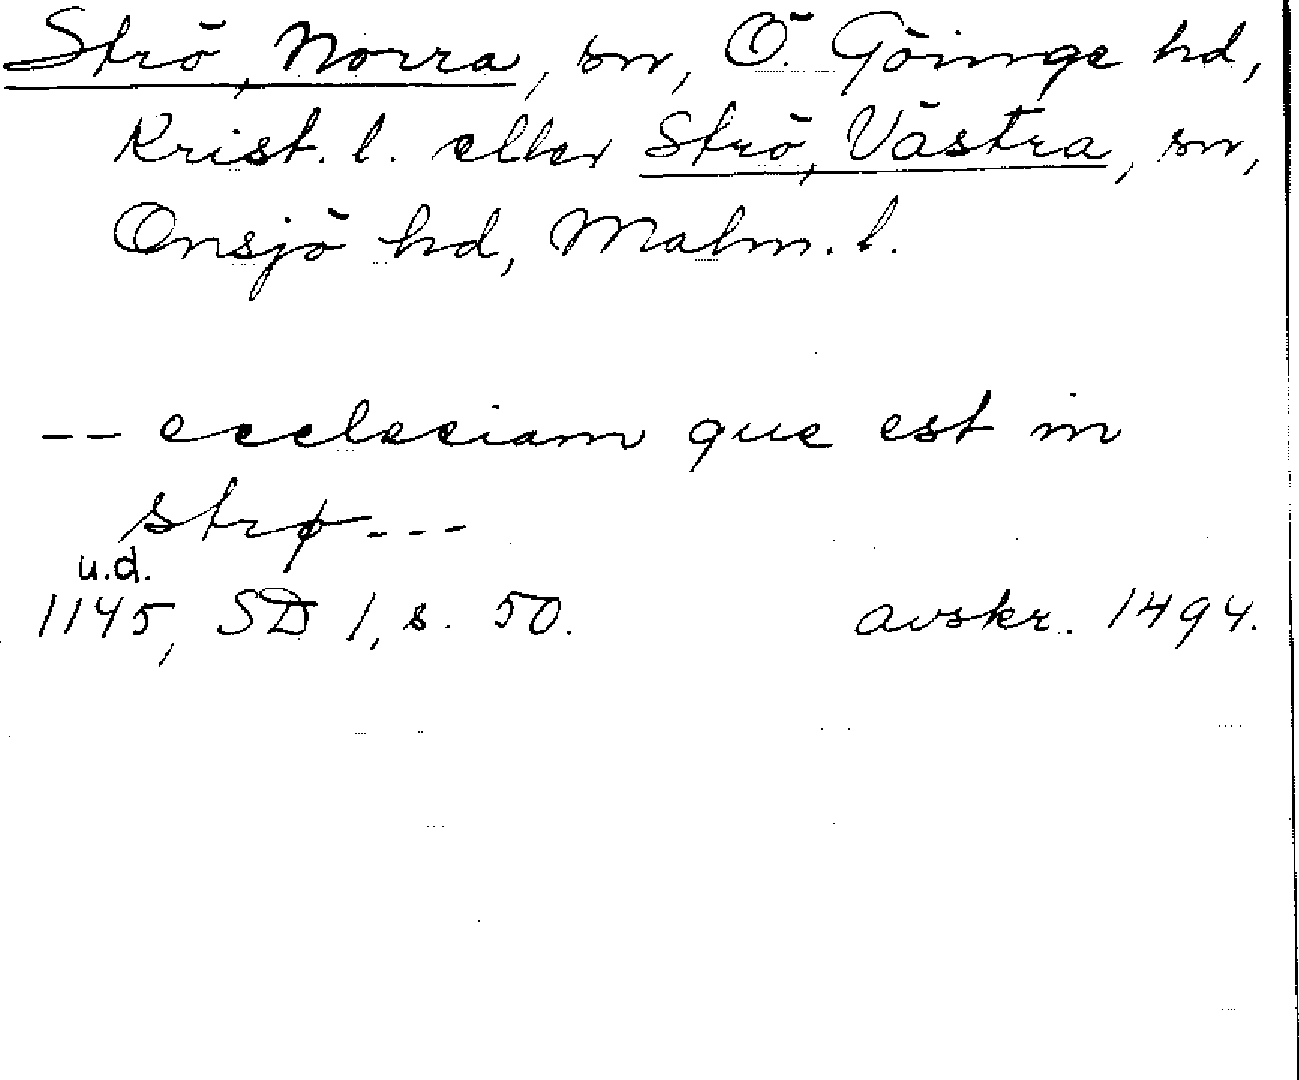 Strö, Norra, sn, Ö. Göinge hd,
Krist. l. eller Strö, Västra, sn,
Onsjö hd, Malm. l.
-- ecclesiam que est in
strø---
u.d.
1145, SD 1, s. 50. avskr. 1494.